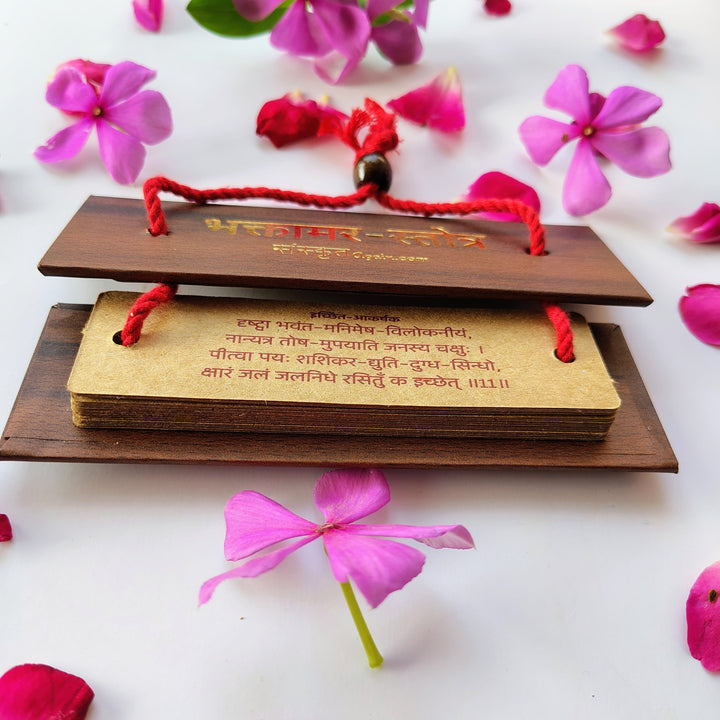 भक्तामर-स्तोत्र
संस्कृत
इच्छित-आकर्षक
दृष्ट्वा भवंत-मनिमेष-विलोकनीयं,
नान्यत्र तोष-मुपयाति जनस्य चक्षुः ।
पीत्वा पयः शशिकर-द्युति-दुग्ध-सिन्धो,
क्षारं जलं जलनिधे रसितुँ क इच्छेत् ॥11॥